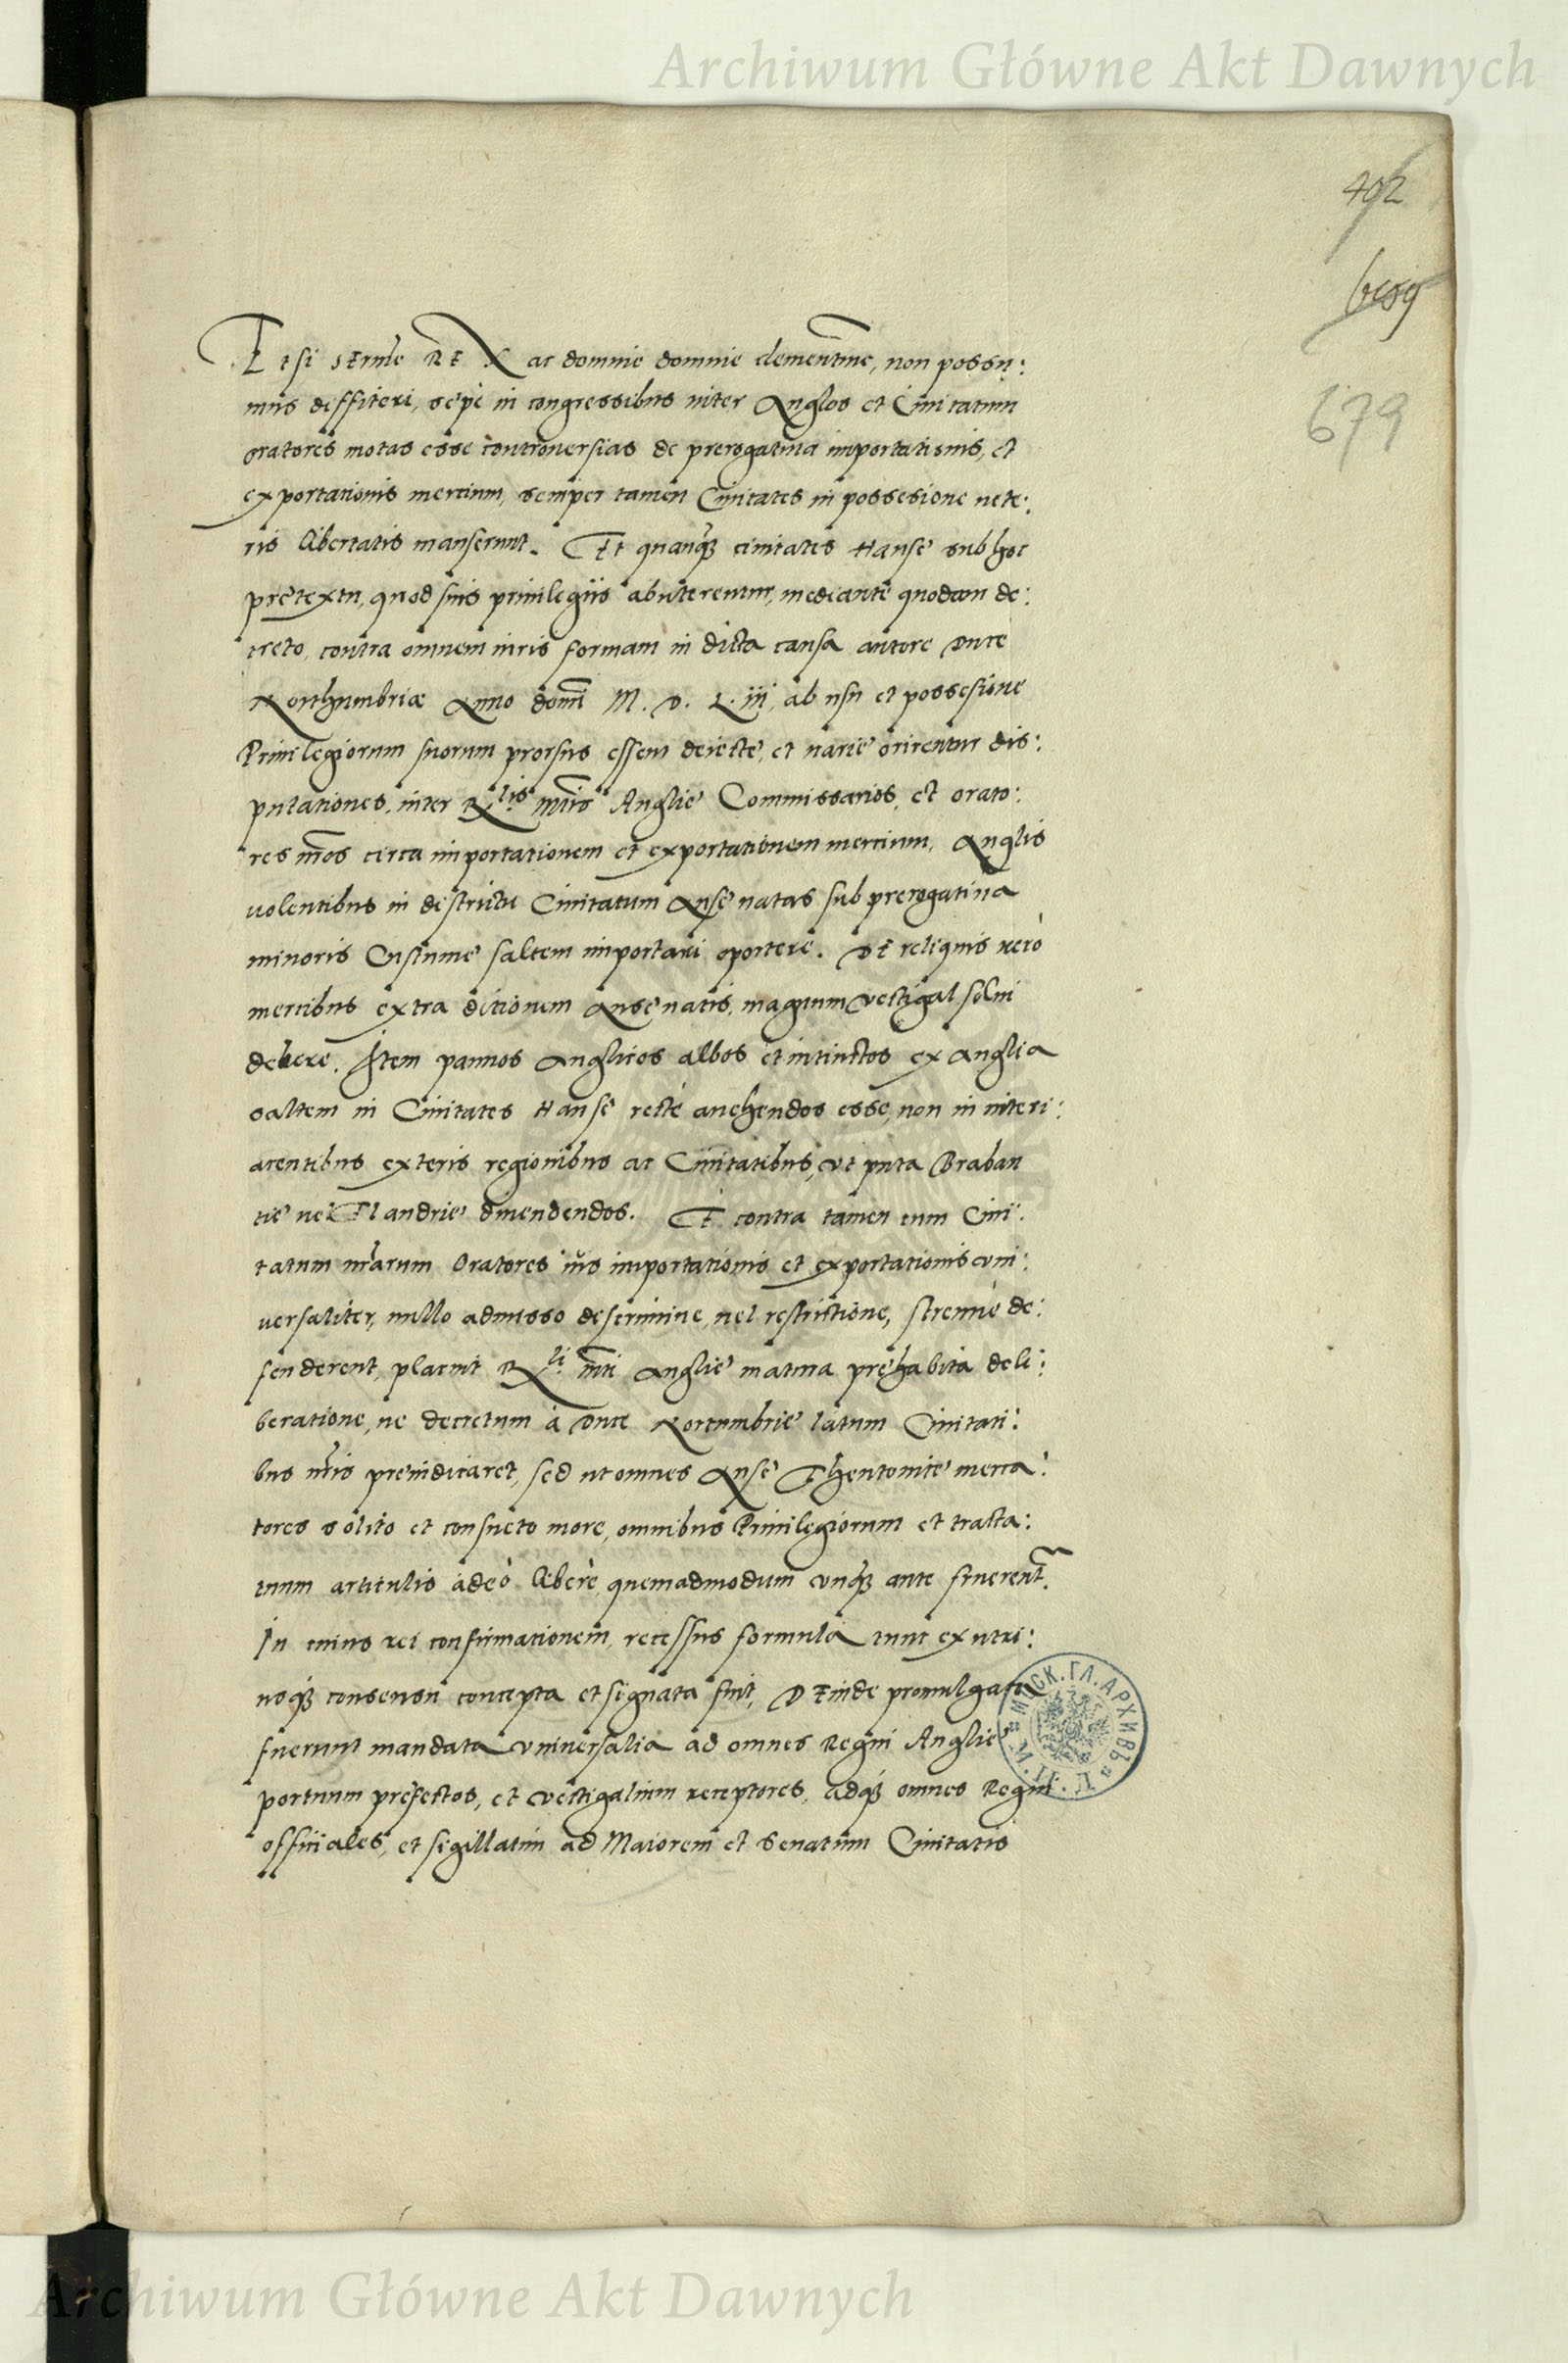 Archiwum Główne Akt Dawnych
402
679
Etsi serme REX ac domine domine clementme, non possu:
mus diffiteri, sepè in congressibus inter Anglos et Ciuitatum
oratores motas esse controuersias de prerogatiua importationis, et
exportationis mercium, semper tamen Ciuitates in possesione uete:
ris libertatis manserunt. Et quanq3 ciuitates Hanse sub hoc
pretextu, quod suis priuilegiis abuterentur, mediante quodam de:
creto, contra omnem iuris formam in dicta causa autore Duce
Northumbriæ Anno domi M. D. L. iii, ab usu et possesione
Priuilegiorum suorum prorsus essent deiecte, et uarie orirentur dis:
putationes, inter Rlis mtis Anglie Commissarios, et orato:
res nros circa importationem et exportationem mercium, Anglis
uolentibus in destrictu Ciuitatum Anse natas sub prerogatiua
minoris Custume saltem importari oportere. De reliquis uerò
mercibus extra ditionem Anse natis, magnum vectigal solui
debere. Item pannos Anglicos albos et intinctos ex Anglia
saltem in Ciuitates Hanse rectè auehendos esse, non in interi:
acentibus exteris regionibus ac Ciuitatibus, vt puta Braban
tie uel Flandrie diuendendos. E contra tamen cum Ciui:
tatum nrarum Oratores ius importationis et exportationis vni:
uersaliter, nullo admisso descrimine, uel restrictione, strenuè de:
fenderent, placuit Rli mti Anglie matura prehabita deli:
beratione, ne decretum à Duce Nortumbrie latum Ciuitati:
bus nris preiudicaret, sed ut omnes Anse Theutonice merca:
tores solito et consueto more, omnibus Priuilegiorum et tracta:
tuum articulis adeò liberè, quemadmodum vnq3 ante fruerentr.
In cuius rei confirmationem, recessus formula tunc ex utri:
usq3 consensu concepta et signata fuit, Deinde promulgata
fuerunt mandata vniuersalia ad omnes Regni Anglie
portuum prefectos, et vectigalium receptores, adq3 omnes Regni
officiales, et sigillatim ad Maiorem et Senatum Ciuitatis
МОСК. ГЛ. АРХИВЪ
М. И. Д.
Archiwum Główne Akt Dawnych